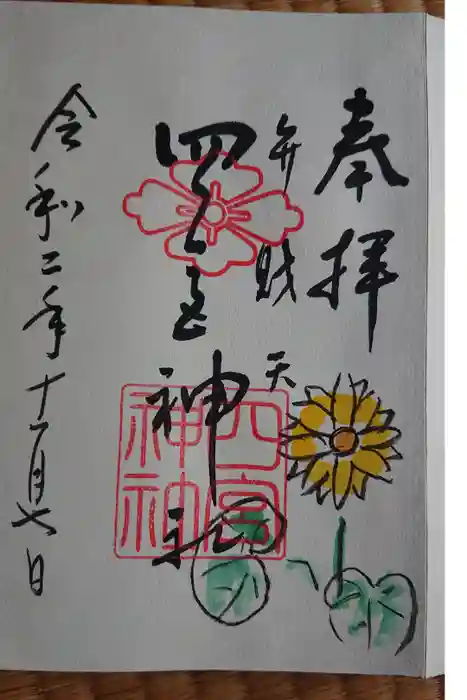 奉拝
弁財天
四宮神社
四宮神社
令和二年十一月七日